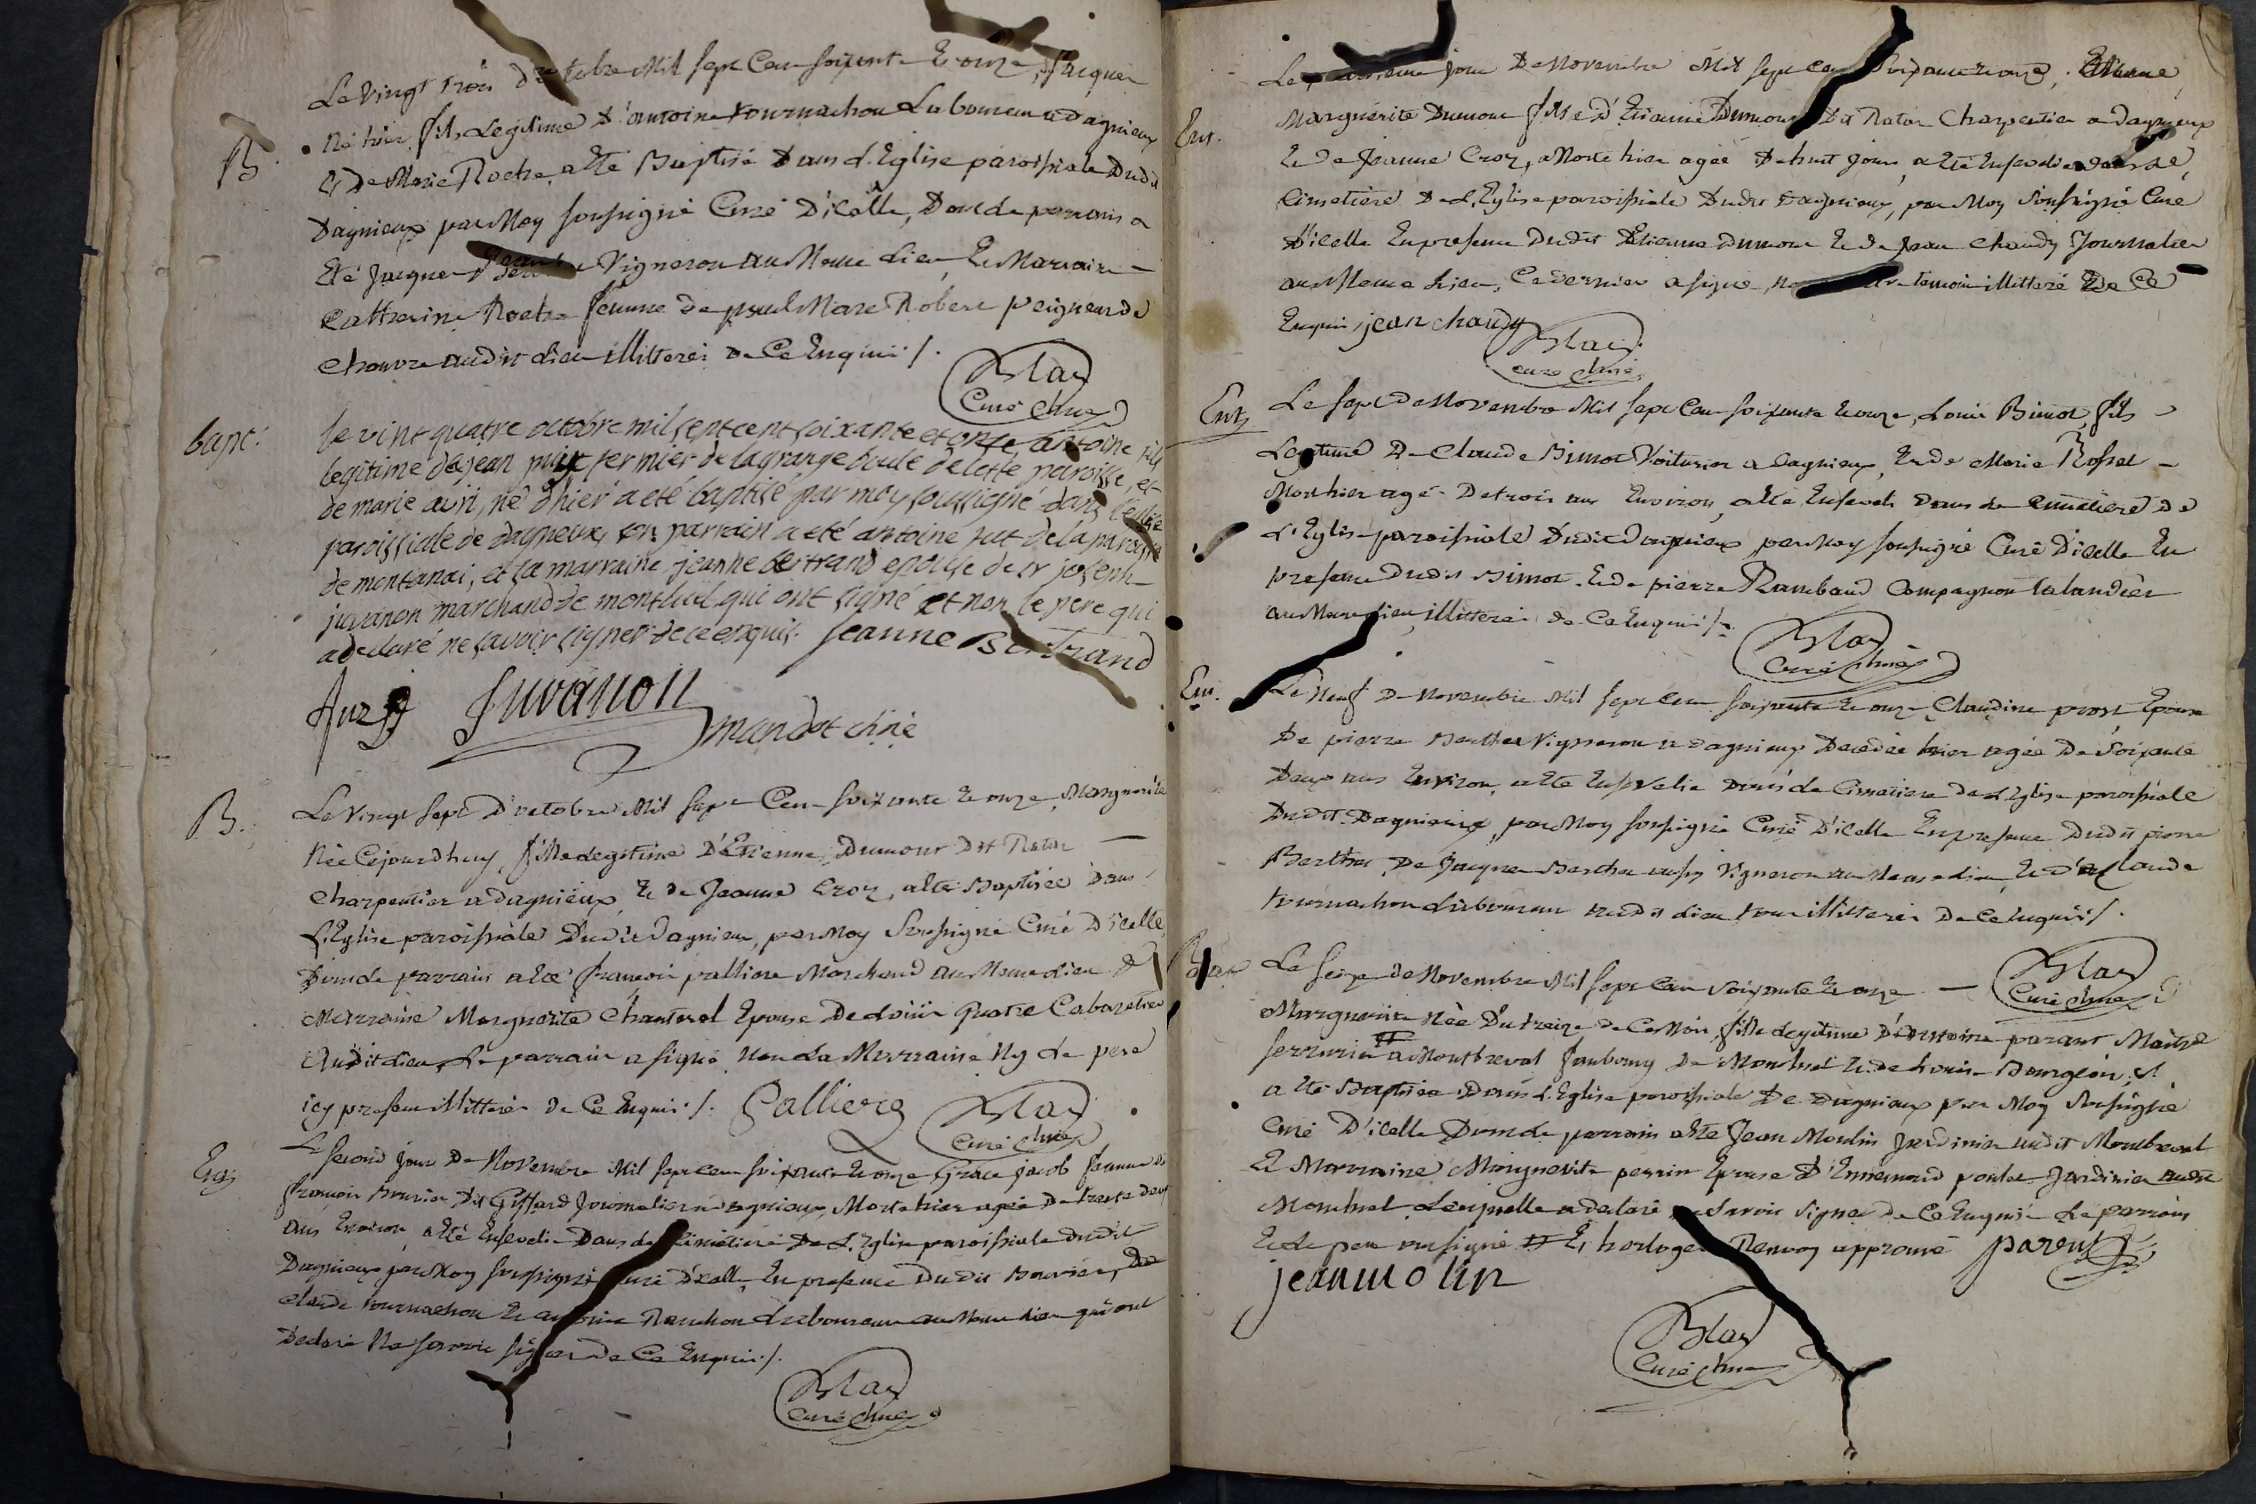 Le vingt trois d'octobre Mil sept Cent soixante & onze, Jacques
B.
Né hier fils Legitime D'antoine tournachon Laboureur a dagnieux
& De Marie Roche a été Baptisé Dans L'Eglise paroissiale Dudit
Dagnieux par Moy soussigné Curé D'icelle, Dont le parrain a
Eté Jacques Vigneron au Meme Lieu, & Marraine
Catherine Roche femme de paul Marc Robert peigneur de
Chanvre audit Lieu illitterés de Ce Enquis ./.
Blay
Curé
bapt.
le vint quatre octobre mil sept cent soixante et onze, antoine fils
legitime de jean fermier de la grange de cette paroisse, et
de marie né d'hier a eté baptisé par moy soussigné dans l'eglise
paroissiale de dagneux son parrain a eté antoine de la paroisse
de montanai, et sa marraine jeanne bertrand epouse de sr joseph
juvanon marchand de montluel qui ont signé et non le pere qui
a declaré ne savoir signer de ce enquis. Jeanne Bertrand
Juvanon
B.
Le Vingt sept D'octobre Mil sept Cent soixante & onze Marguerite
Née Cejourdhuy, fille Legitime D'Etienne Dumour Dit
Charpentier a dagnieux, & de Jeanne Croz, a été Baptisée Dans
L'Eglise paroissiale Dudit Dagnieux, par Moy Soussigné Curé D'icelle
Dont le parrain a été françois palliere Marchand au Meme Lieu &
Marraine Marguerite Chanterel Epouse De Louis Cabaretier
Audit Lieu, Le parrain a signé Non La Marraine Ny Le pere
icy present illitterés de Ce Enquis ./. Palliere
Blay
Curé
Ent.
Le second jour De Novembre Mil sept cent soixante & onze Grace Jacob femme de
françois Bouvier Dit Giffard Journalier a dagnieux, Morte hier agée de trente deux
ans Environ, a Eté Ensevelie Dans le Cimetiere De L'Eglise paroissiale dudit
Dagnieux par Moy soussigné Curé D'icelle, En presence Dudit Bouvier, De
Claude tournachon & antoine Laboureurs au Meme Lieu qui ont
Declaré Ne scavoir signer de Ce Enquis ./.
Blay
Curé
Le jour De Novembre Mil sept cent Soixante & onze,
Ent.
Marguerite Dumour fille D'Etienne Dumour Dit Charpentier a Dagnieux
& De Jeanne Croz, Morte hier agée De huit jours a Eté Ensevelie dans Le
Cimetiere De L'Eglise paroissiale Dudit Dagnieux, par Moy Soussigné Curé
D'icelle En presence Dudit Etienne Dumour & De Jean Chaudy Journalier
au Meme Lieu, Ce dernier a signé, temoin illitteré De Ce
Enquis jean chaudy
Blay
curé
Ent.
Le sept De Novembre Mil sept Cent soixante & onze, Louis Bimot, fils
Legitime De Claude Bimot Voiturier a Dagnieux, & de Marie Rosset
Mort hier agé De trois ans Environ, a Eté Enseveli Dans le Cimetiere De
L'Eglise paroissiale Dudit Dagnieux par Moy soussigné Curé D'icelle En
presence Dudit Bimot & de pierre Rambaud Compagnon talandier
au Meme Lieu, illitterés de Ce Enquis ./.
Blay
Curé
Ent.
Le Neuf De Novembre Mil sept Cent soixante & onze Claudine prost Epouse
De pierre Berthet Vigneron a dagnieux Decedée hier agée De Soixante
Deux ans Environ, a Eté Ensevelie Dans le Cimetiere De L'Eglise paroissiale
Dudit Dagnieux, par Moy soussigné Curé D'icelle En presence Dudit pierre
Berthet, De Jacques Berthet aussy Vigneron au Meme Lieu, & De Claude
tournachon Laboureur audit Lieu tous illitterés De Ce Enquis ./.
Blay
Curé
Bap
Le seize de Novembre Mil sept Cent Soixante & onze
Marguerite Née Du treize de Ce Mois, fille Legitime D'Antoine parant Maitre
serrurier # a Montbreval fauxbourg De Montluel & de Louise Bourgeois,
a Eté Baptisée Dans L'Eglise paroissiale De Dagnieux par Moy Soussigné
Curé D'icelle Dont le parrain a Eté Jean Moulin Jardinier audit Montbreval
& Marraine Marguerite perrin Epouse D'Ennemond Jardinier audit
Montluel Laquelle a declaré ne Savoir Signer De Ce Enquise Le parrain
& Le pere ont signé # & horloger Renvoy approuvé parent
jean molin
Blay
Curé